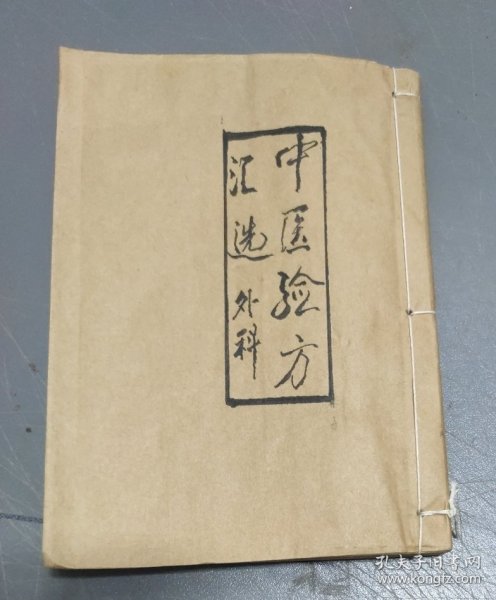 中医验方
汇选外科
孔夫子旧书网
www.kongfz.com